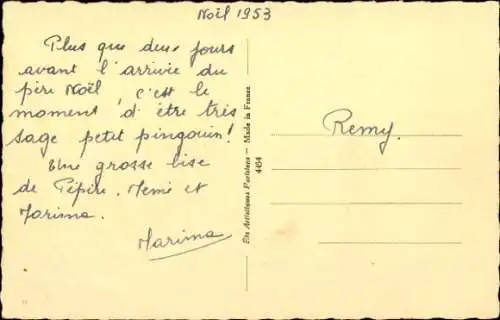 Noël 1953
Plus que deux jours
avant l'arrivée du
père Noël, c'est le
moment d'être très
sage petit pingouin!
Une grosse bise
de Pépère. Memé et
Marima.
Marima
Ets Artistiques Parisiens — Made in France
4454
Remy.